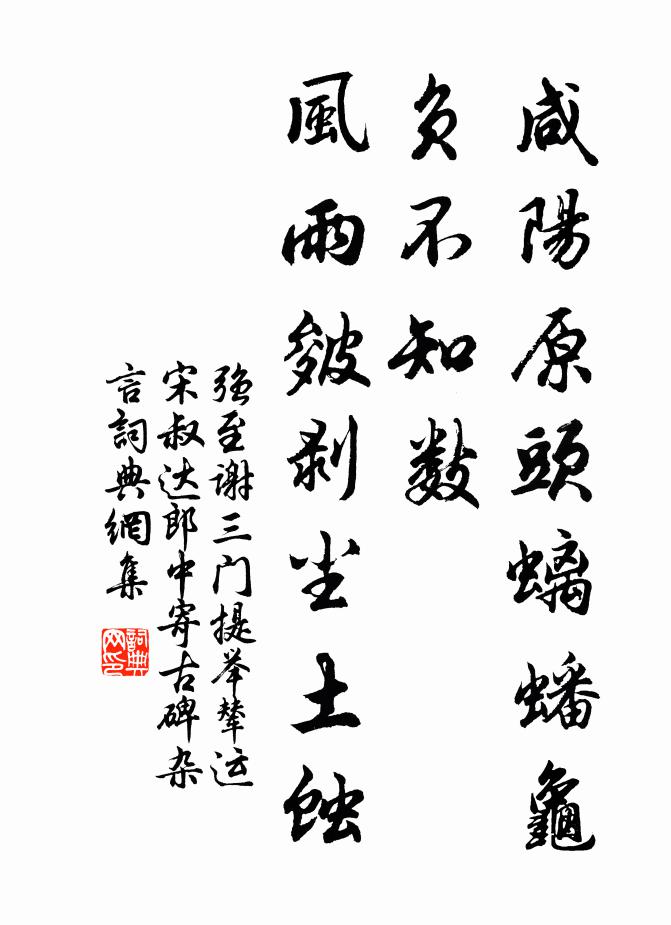 咸陽原頭螭蟠龜
負不知數
風雨皴剥尘土蝕
强至谢三门提举辇运
宋叔达郎中寄古碑杂
言詞典網集
詞典
网印